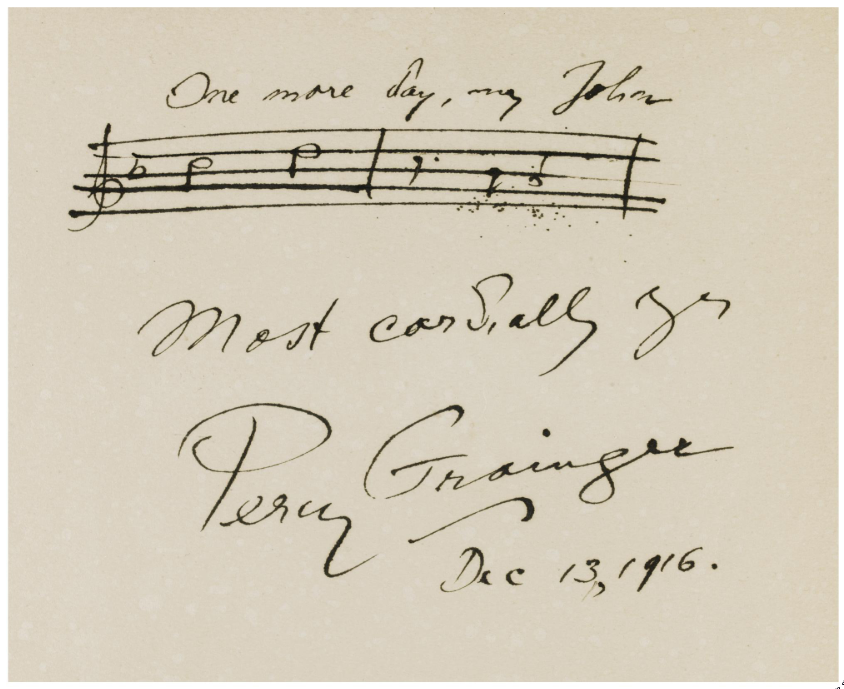 One more day, my John
Most cordially yrs
Percy Grainger
Dec 13, 1916.